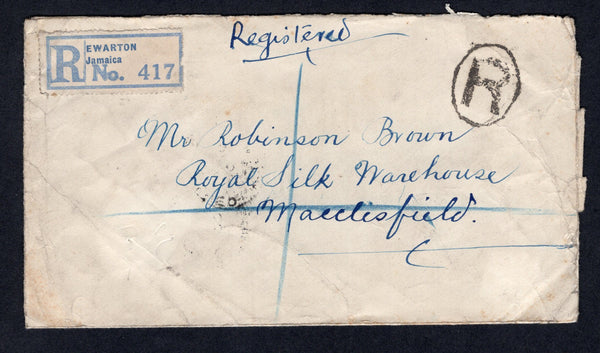 Registered
R EWARTON
Jamaica
No. 417
R
Mr Robinson Brown
Royal Silk Warehouse
Macclesfield.